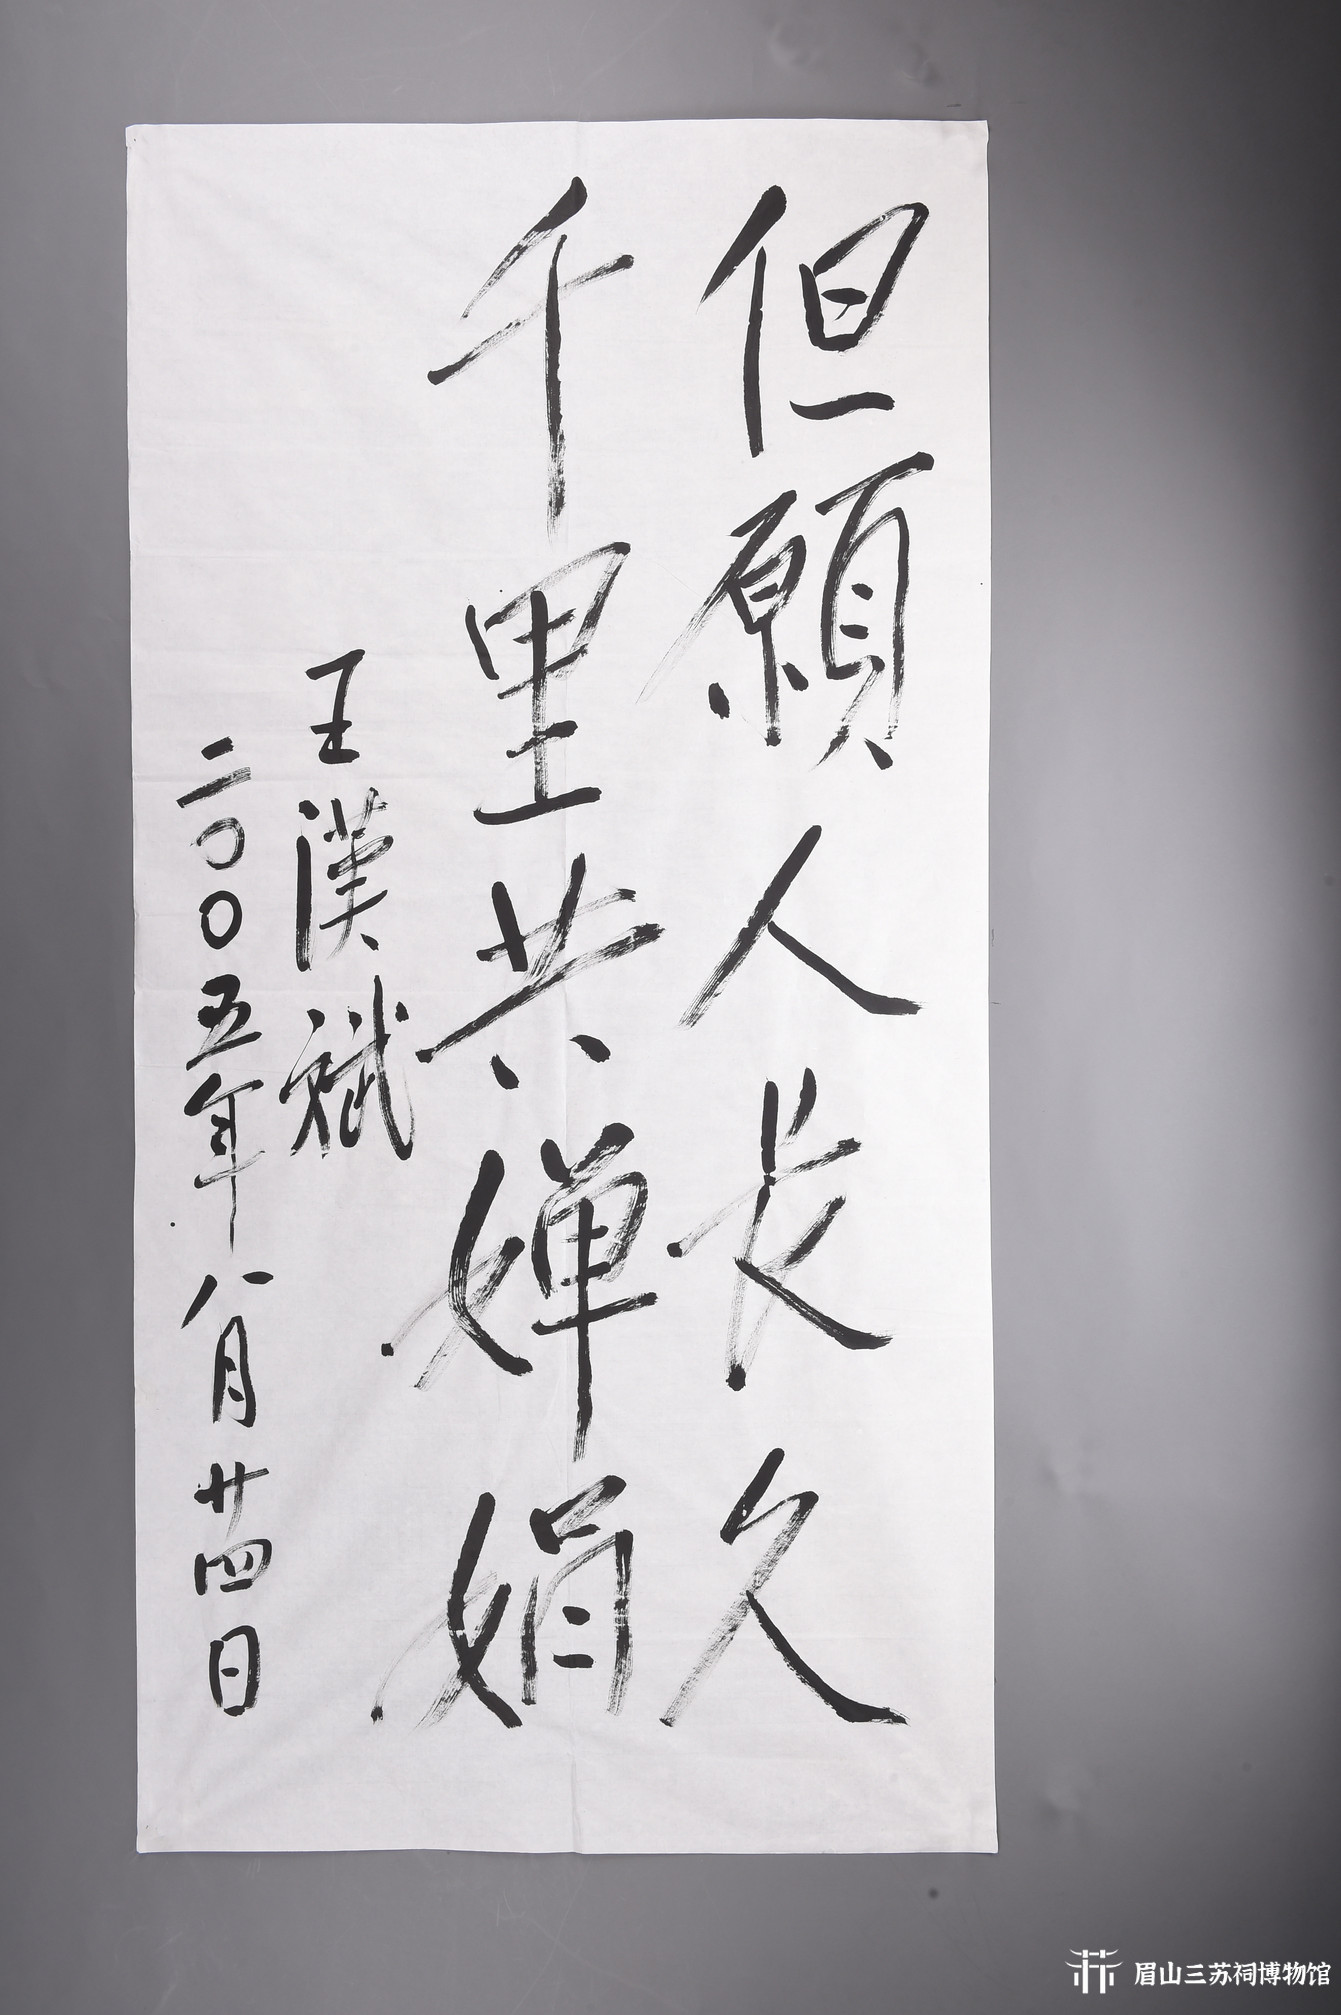 但願人长久
千里共婵娟
王漢斌
二〇〇五年八月廿四日
眉山三苏祠博物馆